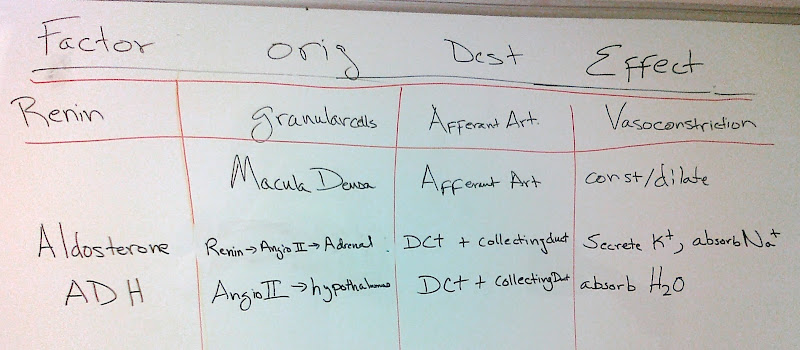 Factor orig Dest Effect
Renin granularcells Afferant Art. Vasoconstriction
Macula Densa Afferant Art const/dilate
Aldosterone Renin→Angio II→Adrenal. DCt + collectingduct Secrete K+, absorb Na+
ADH Angio II→hypothalamus DCt + collectingDuct absorb H2O